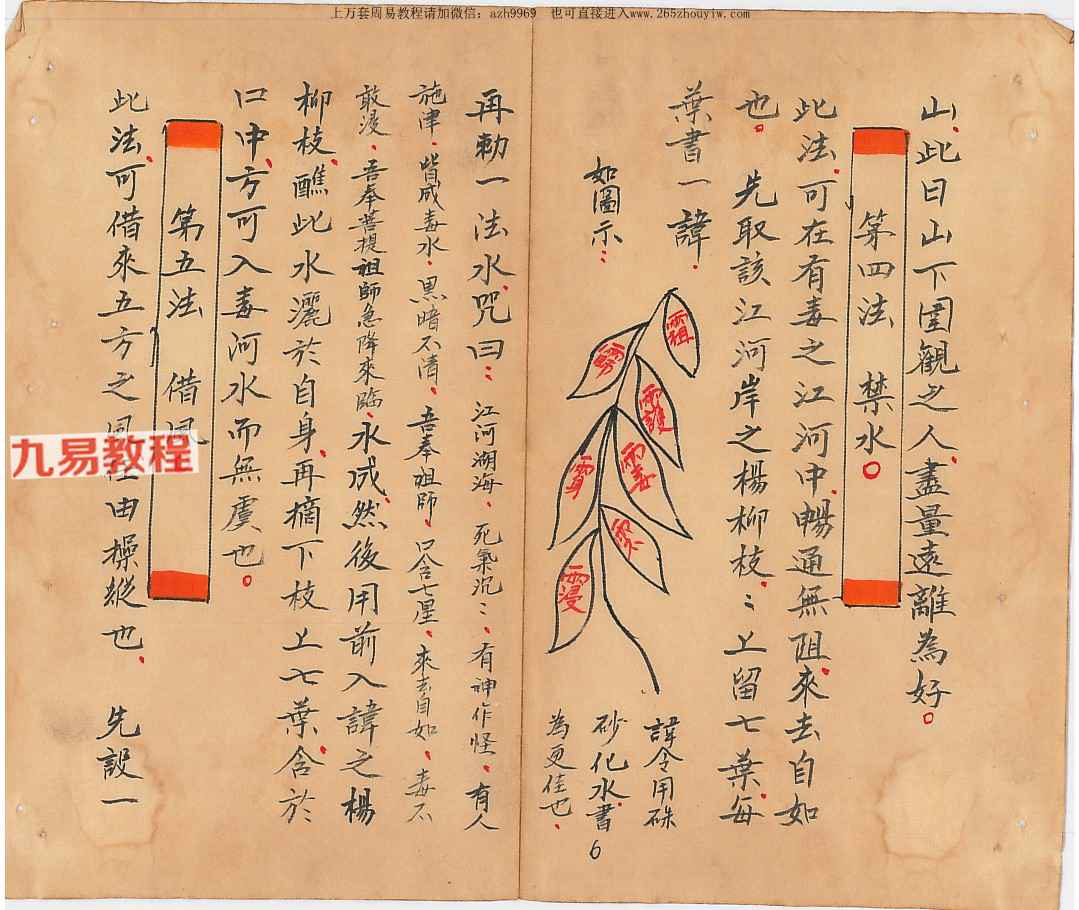 上万套周易教程请加微信：azh9969 也可直接进入www.265zhouyiw.com
山、此日山下圍觀之人、盡量遠離為好。
第四法 禁水。
此法、可在有毒之江河中、暢通無阻、來去自如
也。先取該江河岸之楊柳枝、〻上留七葉、每
葉書一諱、
如圖示：
諱令用硃
砂化水、書
為更佳也、
6
再勅一法水、咒曰：江河湖海、死氣沉〻、有神作怪、有人
施津、皆成毒水、黑暗不清、吾奉祖師、口含七星、來去自如、毒不
敢浸、吾奉菩提祖師急降來臨、水成、然後用前入諱之楊
柳枝、醮此水灑於自身、再摘下枝上七葉、含於
口中、方可入毒河水而無虞也。
第五法 借風
此法、可借來五方之風任由操縱也、先設一
九易教程